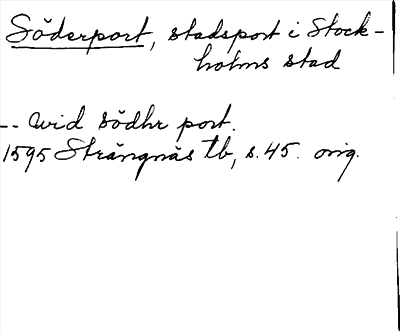 Söderport, stadsport i Stock-
holms stad
-- wid södhr port.
1595 Strängnäs tb, s. 45. orig.